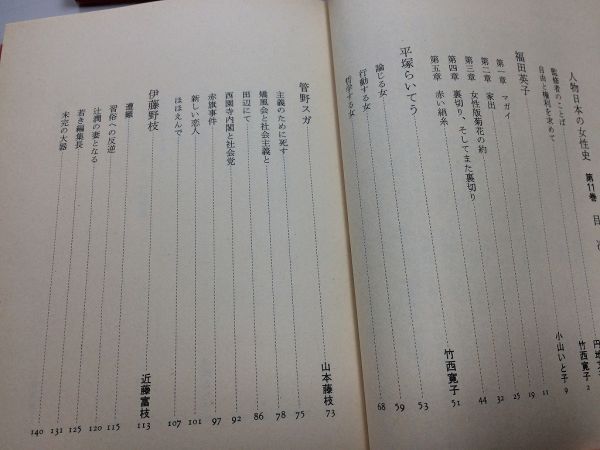 人物日本の女性史 第11巻 目次
監修者のことば 円地文
自由と権利を求めて 竹西寛子 2
福田英子 小山いと子 9
第一章 マガイ 11
第二章 家出 19
第三章 女性版菊花の約 25
第四章 裏切り、そしてまた裏切り 32
第五章 赤い絹糸 44
平塚らいてう 竹西寛子 51
論じる女 53
行動する女 59
哲学する女 68
管野スガ 山本藤枝 73
主義のために死す 75
矯風会と社会主義と 78
田辺にて 86
西園寺内閣と社会党 92
赤旗事件 97
新しい恋人 101
ほほえんで 107
伊藤野枝 近藤富枝 113
115
習俗への反逆 120
辻潤の妻となる 125
若き編集長 131
未完の大器 140